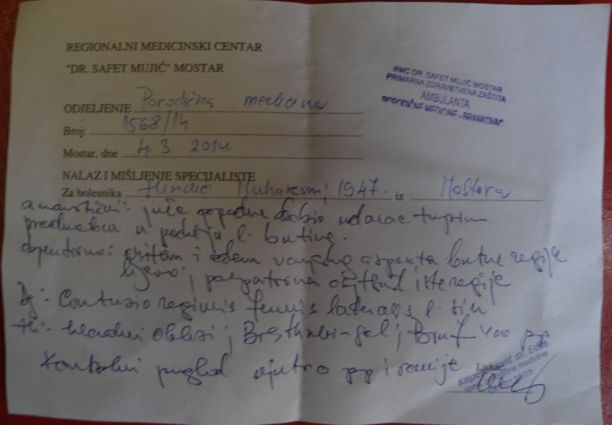 REGIONALNI MEDICINSKI CENTAR
"DR. SAFET MUJIĆ" MOSTAR
RMC DR. SAFET MUJIĆ MOSTAR
PRIMARNA ZDRAVSTVENA ZAŠTITA
AMBULANTA
PORODIČNE MEDICINE - BRANKOVAC
ODJELJENJE Porodična medicina
Broj: 1568/14
Mostar, dne 4.3.2014.
NALAZ I MIŠLJENJE SPECIJALISTE
Za bolesnika Hindić Muharem, 1947. iz Mostara
juče dobio udarac tupim
predmetom u l. butine.
objektivno: i edem aspekta butne regije
lijevo; palpatorna iste regije
Dg: Contusio regionis femoris lateralis l. sin
Th: hladni oblozi; gel; Bruf 400 pp
Kontrolni pregled ujutro pp i ranije
Ljekar
dr. Edin